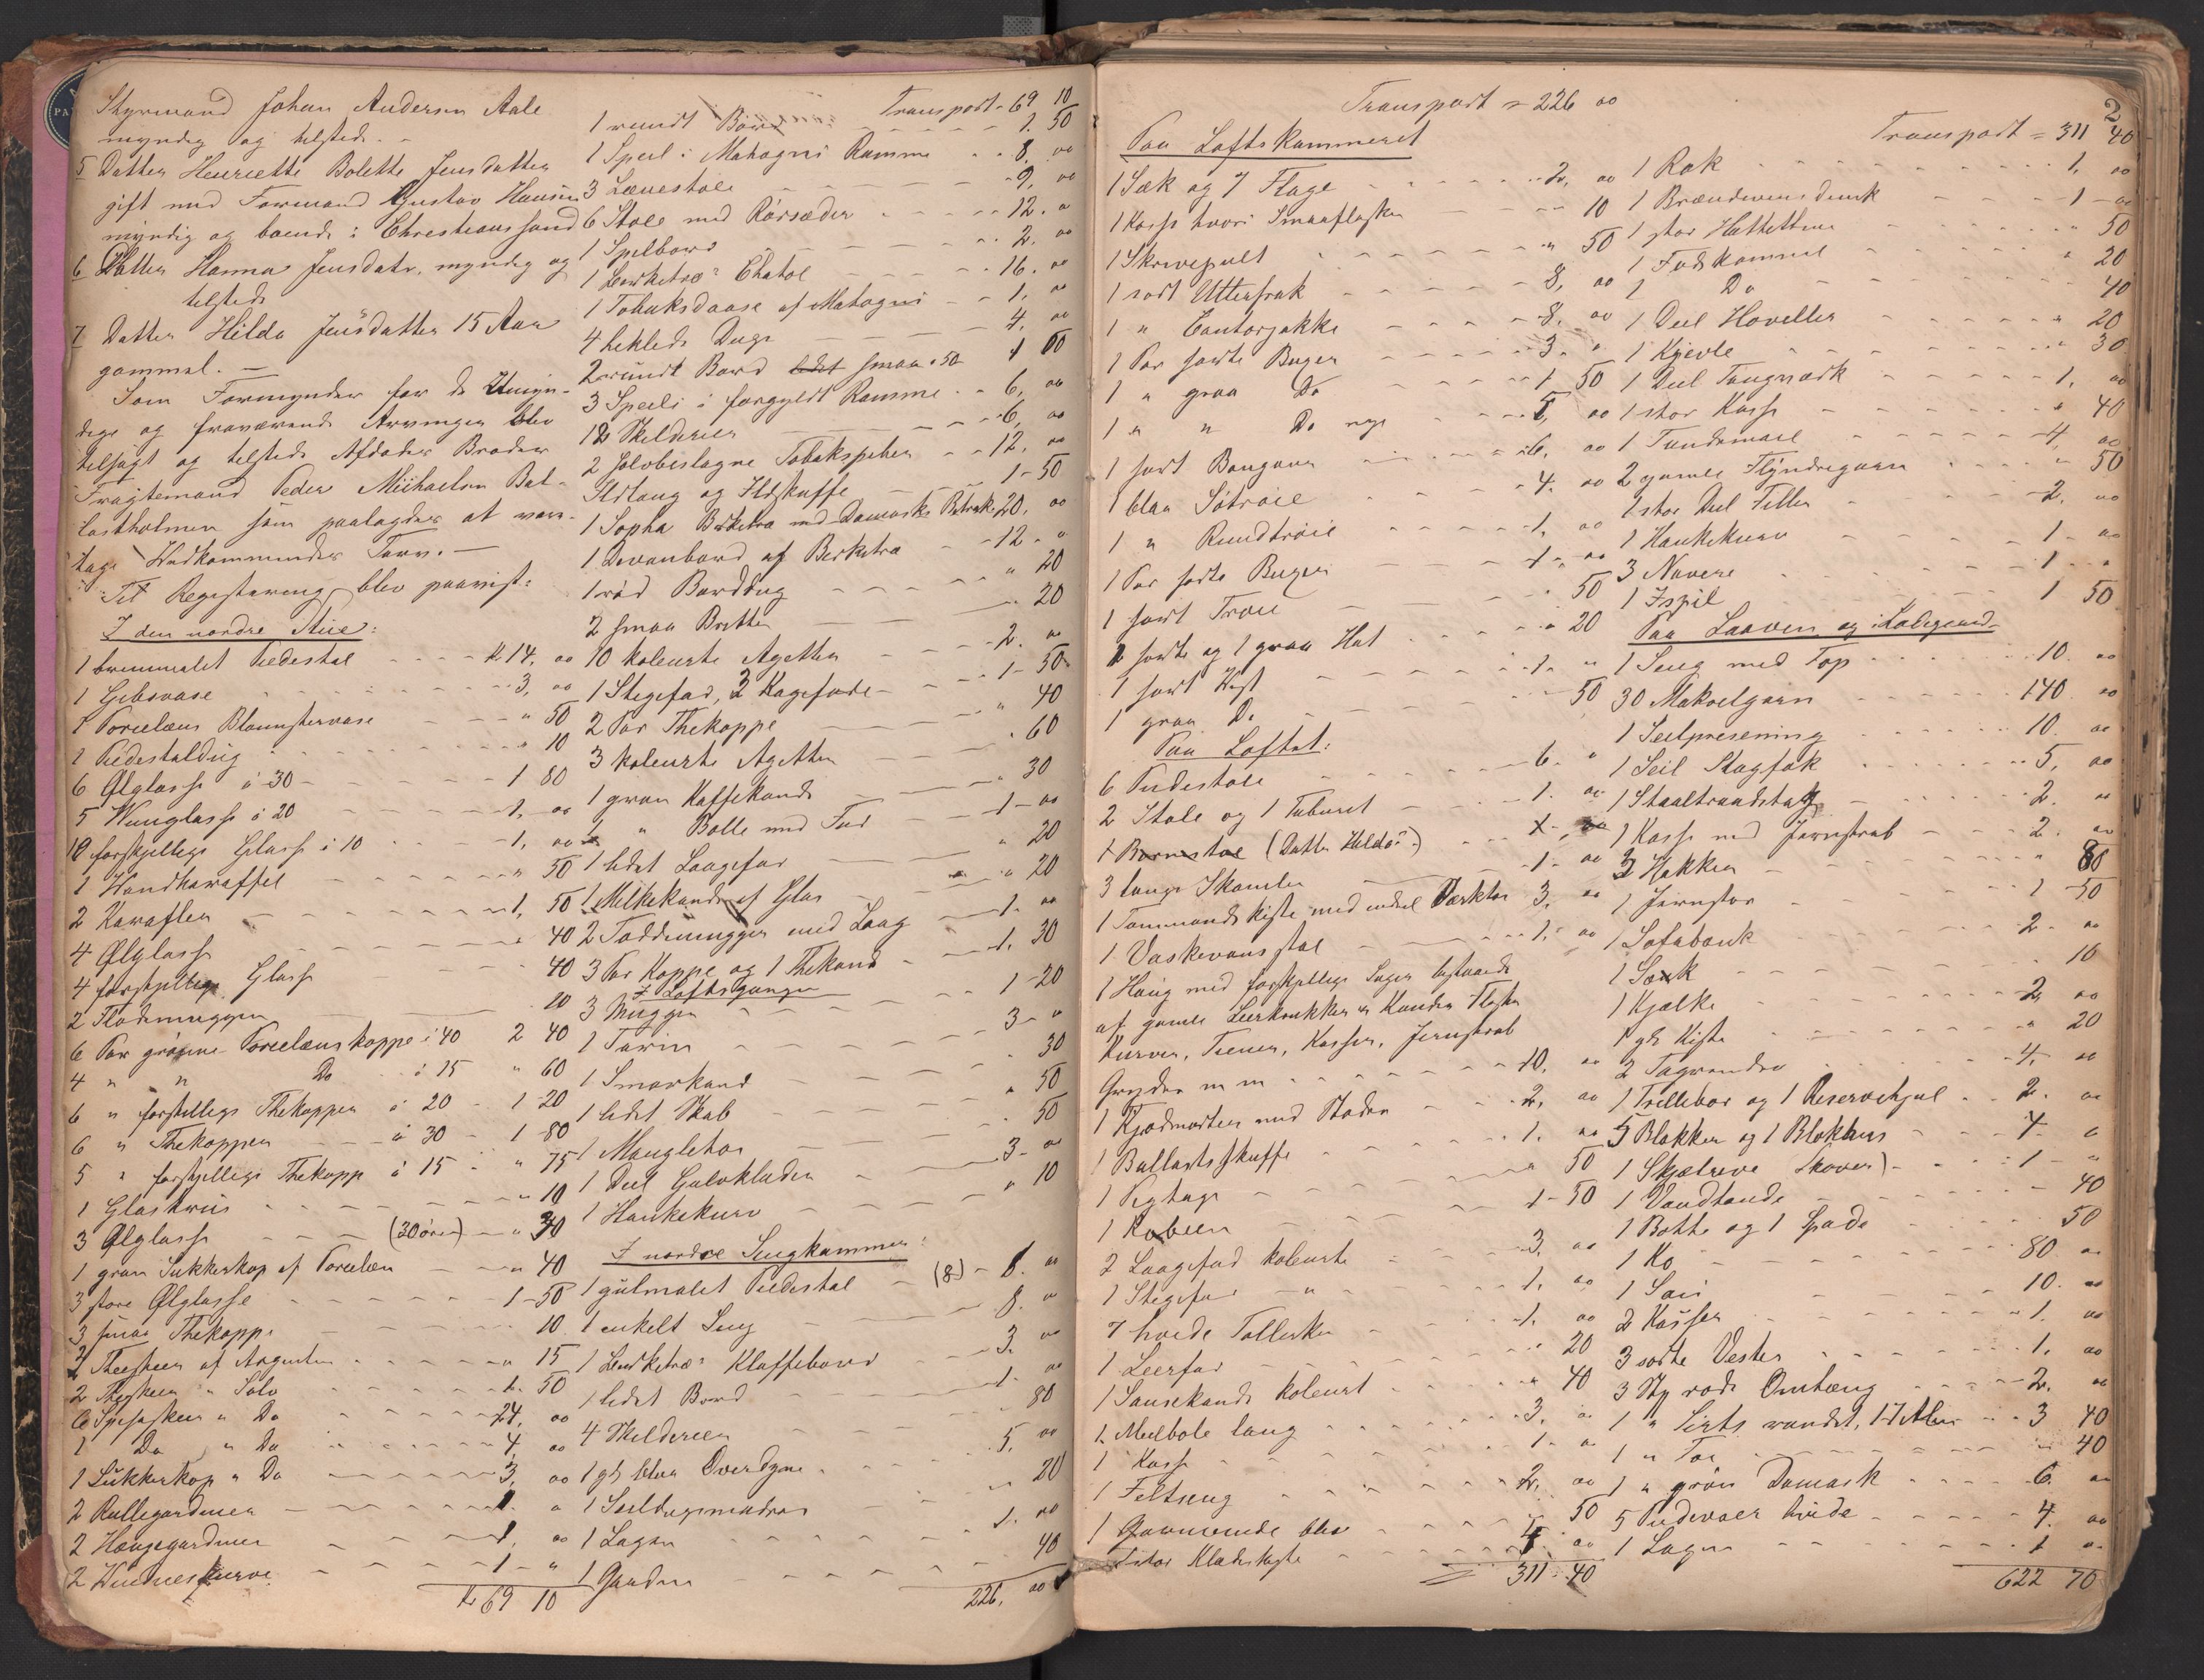 Styrmand Johan Andersen Aale
myndig og tilstede. -
5 Datter Henriette Bolette Jensdatter
gift med Formand Gustav Hansen
myndig og boende i Christianssand
6 Datter Hanna Jensdatr. myndig og
tilstede
7 Datter Hilda Jensdatter 15 Aar
gammel. -
Som Formynder for de Umyn-
dige og fraværende Arvinger blev
tilsagt og tilstede Afdødes Broder
Fragtemand Peder Michaelsen Bal-
lastholmen som paalagdes at vare-
tage Vedkommendes Tarv. -
Til Registrering blev paavist:
I den nordre Stue:
1 brunmalet Piedestal - - - - K 14, 00
1 Gibsvase - - - 3, 00
1 Porcelæns Blomstervase - - - " 50
1 Piedestaldug - - - " 10
6 Ølglasse à 30 - - - 1 80
5 Viinglasse à 20 - - - 1, 00
10 forskjellige Glasse à 10 - - - 1, 00
1 Vandkaraffel - - - " 50
2 Karafler - - - 1, 50
4 Ølglasse - - - " 40
4 forskjellige Glasse - - - 40
2 Flødemugger - - - 20
6 Par grønne Porcelæns koppe à 40 2 40
4 " " Do à 15 " 60
6 " forskjellige Thekopper à 20 - 1 20
6 " Thekopper - - - à 30 - 1 80
5 " forskjellige Thekopp à 15 - " 75
1 Glaskrus - - - " 10
3 Ølglasse - - - (30 øre) - " 30
1 grøn Sukkerkop af Porcelæn - - " 40
3 store Ølglasse - - - 1-50
3 smaa Thekoppe - - - 10
2 Theskeer af Argentin - - - " 15
2 Theskeer " Sølv - - - 1. 50
6 Spiseskeer " Do - - - 24, 00
1 Do " Do - - - 4, 00
1 Sukkerkop " Do - - - 3, 00
2 Rullegardiner - - - 1. "
2 Hængegardiner - - - 1, 00
2 Vindueskurve - - - 1 - "
K 69 10
Transport - 69 10
1 rundt Bord - - - 1. 50
1 Speil i Mahogni Ramme - - 8, 00
3 Lænestole - - - 9, 00
6 Stole med Rørsæder - - - 12. 00
1 Spilbord - - - 2. 00
1 Birketræs Chatol - - - 16. 00
1 Tobaksdaase af Mahogni - - 1, 00
4 heklede Duge - - - 4. 00
2 rundt Bord lidet smaa à 50 1 00
3 Speile i forgyldt Ramme - - 6, 00
12 Skilderier - - - 6, 00
2 sølvbeslagne Tobakspiber - - 12. 00
Ildtang og Ildskuffe - - - 1-50
1 Sopha Birketræ med Damasks Betræk 20, 00
1 Divanbord af Birketræ - - 12 - "
1 rød Borddug - - - " 20
2 smaa Bretter - - - " 20
10 koleurte Asjetter - - - 2. 00
1 Stegefad, 2 Kagefade - - - 1-50
2 Par Thekoppe - - - " 40
3 koleurte Asjetter - - - " 60
1 grøn Kaffekande - - - " 30
1 " Bolle med Fad - - - 1 - 00
1 lidet Laagefad - - - " 20
1 Melkekande af Glas - - - " 20
2 Toddemugger med Laag - - - 1. 00
3 Par Koppe og 1 Thekande - - - 1. 30
I Loftsgangen
3 Mugger - - - 1-20
1 Tarin - - - 3 - "
1 Smørkande - - - " 30
1 lidet Skab - - - " 50
1 Manglehor - - - " 50
1 Deel Gulvklæder - - - 3 - 00
1 Hankekurv - - - " 10
I nordre Sengkammer:
1 gulmalet Piedestal - (8) - 8. 00
1 enkelt Seng - - - 8. "
1 Birketræs Klaffebord - - - 3. 00
1 lidet Bord - - - 1. 00
4 Skilderier - - - 80
1 gl. blaa Overdyne - - - 5, 00
1 Seildugsmadras - - - " 20
1 Lagen - - - 1. 00
1 Gardin - - - 40
226, 00
Transport = 226 00
Paa Loftskammeret
1 Sæk og 7 Flage - - - 2, 00
1 Kasse hvori Smaaflasker - - - 10
1 Skrivepult - - - " 50
1 sort Uttersfrak - - - 8, 00
1 " Contorjakke - - - 8. 00
1 Par sorte Buxer - - - 3. "
1 " graa Do - - - 1 50
1 " " Do nye - - - 5, 00
1 sort Bonjour - - - 6, 00
1 blaa Sötröie - - - 4. 00
1 " Rundtröie - - - 1, 00
1 Par sorte Buxer - - - 1 - 00
1 sort Tröie - - - 50
2 sorte og 1 graa Hat - - - " 20
1 sort Vest - - - 1. "
1 graa Do - - - 50
Paa Loftet:
6 Pudestole - - - 6. "
2 Stole og 1 Taburet - - - 1. 00
1 Barnestol (Datter Hilda's) - - 1 -
3 lange Skamler - - - 1. 00
1 Tømmandskiste med endeel Værktøi 3, 00
1 Vaskevandsstol - - - 1. 00
1 Haug med forskjellige Sager bestaaende
af gamle Leerkrukker, Kander, Flasker
Kurver, Tiener, Kasser, Jernskrab
Gryder m m - - - 10. 00
1 Kjødmorter med Støder - - - 2, 00
1 Ballastskuffe - - - 1. 00
1 Pigtage - - - " 50
1 Kobeen - - - 1-50
2 Laagefad koleurte - - - 3. 00
1 Stegefad " - - - 1. 00
7 hvide Tallerker - - - 1. 00
1 Leerfad - - - 20
1 Sausekande koleurt - - - " 40
1 Meelbole lang - - - 3. 00
1 Kasse - - - 1. 00
1 Feltseng - - - 2. 00
1 blaa - - - 50
1 stor Klædeskiste - - - 4 00
= 311 - 40
2
Transport = 311 40
1 Rok - - - 1, 00
1 Brændeviinsdunk - - - 1 - 00
1 stor - - - " 50
1 - - - " 20
1 Do - - - 40
1 Deel Hoveller - - - " 20
1 Kjevle - - - " 30
1 Deel Taugværk - - - 1, 00
1 stor Kasse - - - " 40
1 Tøndemaal - - - 4. 00
2 gamle Flyndregarn - - - " 50
1 stor Deel Filler - - - 2. 00
1 Hankekurv - - - 1 - 00
3 Navere - - - 1 - "
1 Ispil - - - 1 50
Paa Laaven og i Ladegaard
1 Seng med Top - - - 10. 00
30 Makrelgarn - - - 140. 00
1 Seilpresening - - - 10. 00
1 Seil Stagfok - - - 5. 00
1 Staaltraadstag - - - 2. 00
1 Kasse med Jernskrab - - - 2. 00
3 Hakker - - - " 80
1 Jernstør - - - 1 50
1 Sofabænk - - - 2. 00
1 Sænk - - - 10
1 Kjælke - - - 2, 00
1 gl. Kiste - - - " 20
2 Tagrender - - - 4. 00
1 Trillebør og 1 Reservehjul - - 2. 00
5 Blokker og 1 Blokhus - - - 4. 0
1 Skjælreve Skover) - - - 1 - "
1 Vandtønde - - - 40
1 Bøtte og 1 Spade - - - 50
1 Ko - - - 80 00
1 Sau - - - 10. 00
2 Kasser - - - 1. 00
3 sorte Vester - - - 1, 00
3 Sty røde Omhæng - - - 2. 00
1 " Sirts randet, 17 Alen - - 3 40
1 " Tøi - - - 40
1 " grøn Damask - - - 6. 00
5 Pudevaer hvide - - - 4. 00
1 Lagen - - - 1 00
622 70